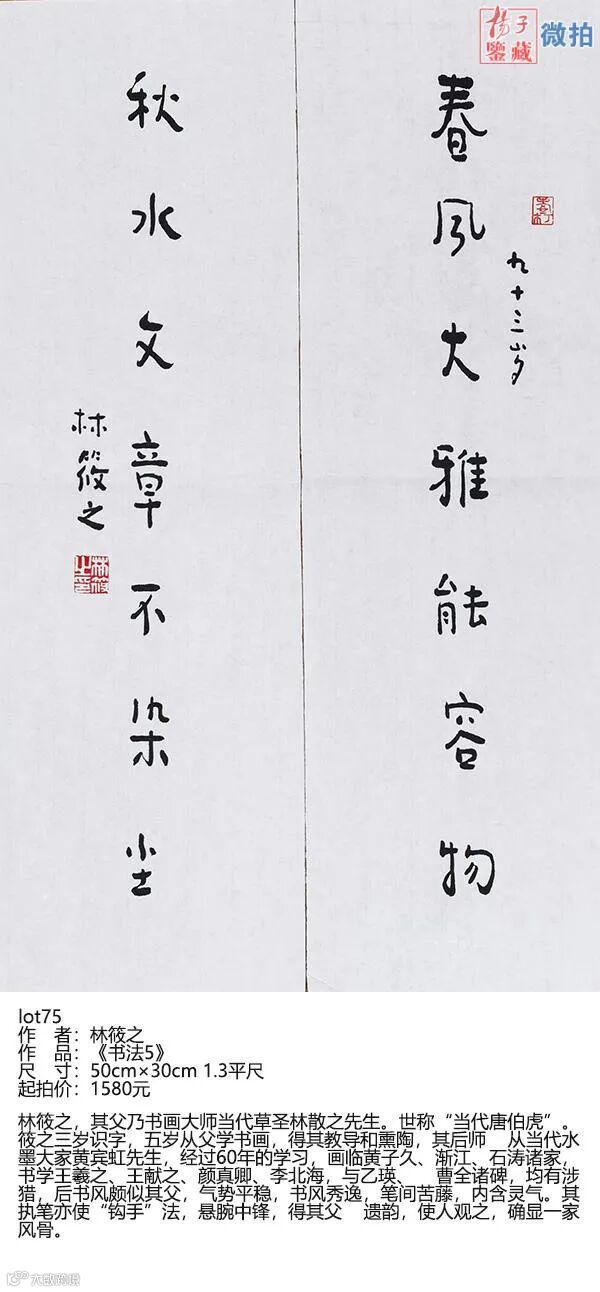 揚子
鑒藏
微拍
春风大雅能容物
九十三岁
秋水文章不染尘
林筱之
林筱之印
lot75
作 者：林筱之
作 品：《书法5》
尺 寸：50cm×30cm 1.3平尺
起拍价：1580元
林筱之，其父乃书画大师当代草圣林散之先生。世称“当代唐伯虎”。
筱之三岁识字，五岁从父学书画，得其教导和熏陶，其后师 从当代水
墨大家黄宾虹先生，经过60年的学习，画临黄子久、渐江、石涛诸家，
书学王羲之、王献之、颜真卿、李北海，与乙瑛、 曹全诸碑，均有涉
猎，后书风颇似其父，气势平稳，书风秀逸，笔间苦藤，内含灵气。其
执笔亦使“钩手”法，悬腕中锋，得其父 遗韵，使人观之，确显一家
风骨。